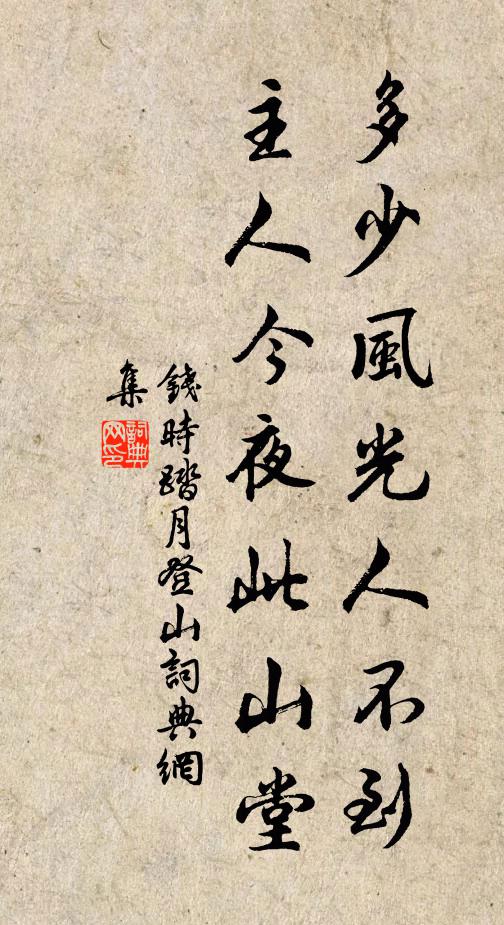 多少風光人不到
主人今夜此山堂
錢時踏月登山詞典網
集
詞典網印